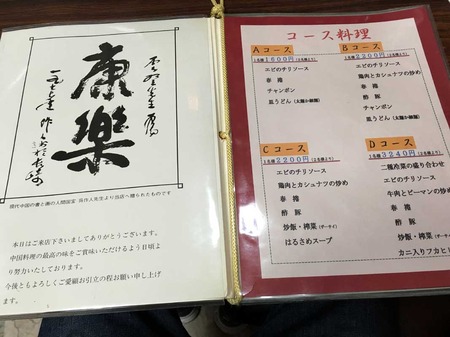 康樂
現代中国の書と画の人間国宝 当作人先生より当店へ贈られたものです
本日はご来店下さいましてありがとうございます。
中国料理の最高の味をご賞味いただけるよう日頃よ
り努力いたしております。
今後ともよろしくご愛顧お引立の程お願い申し上げ
ます。
コース料理
Aコース
1名様1600円(2名様より)
エビのチリソース
春捲
チャンポン
皿うどん(太麺か細麺)
Bコース
1名様2200円(2名様より)
エビのチリソース
鶏肉とカシュナツの炒め
春捲
酢豚
チャンポン
皿うどん(太麺か細麺)
Cコース
1名様2200円(2名様より)
エビのチリソース
鶏肉とカシュナツの炒め
春捲
酢豚
炒飯・榨菜(ザーサイ)
はるさめスープ
Dコース
1名様3240円(2名様より)
二種冷菜の盛り合わせ
エビのチリソース
牛肉とピーマンの炒め
春捲
酢豚
炒飯・榨菜(ザーサイ)
カニ入りフカヒ